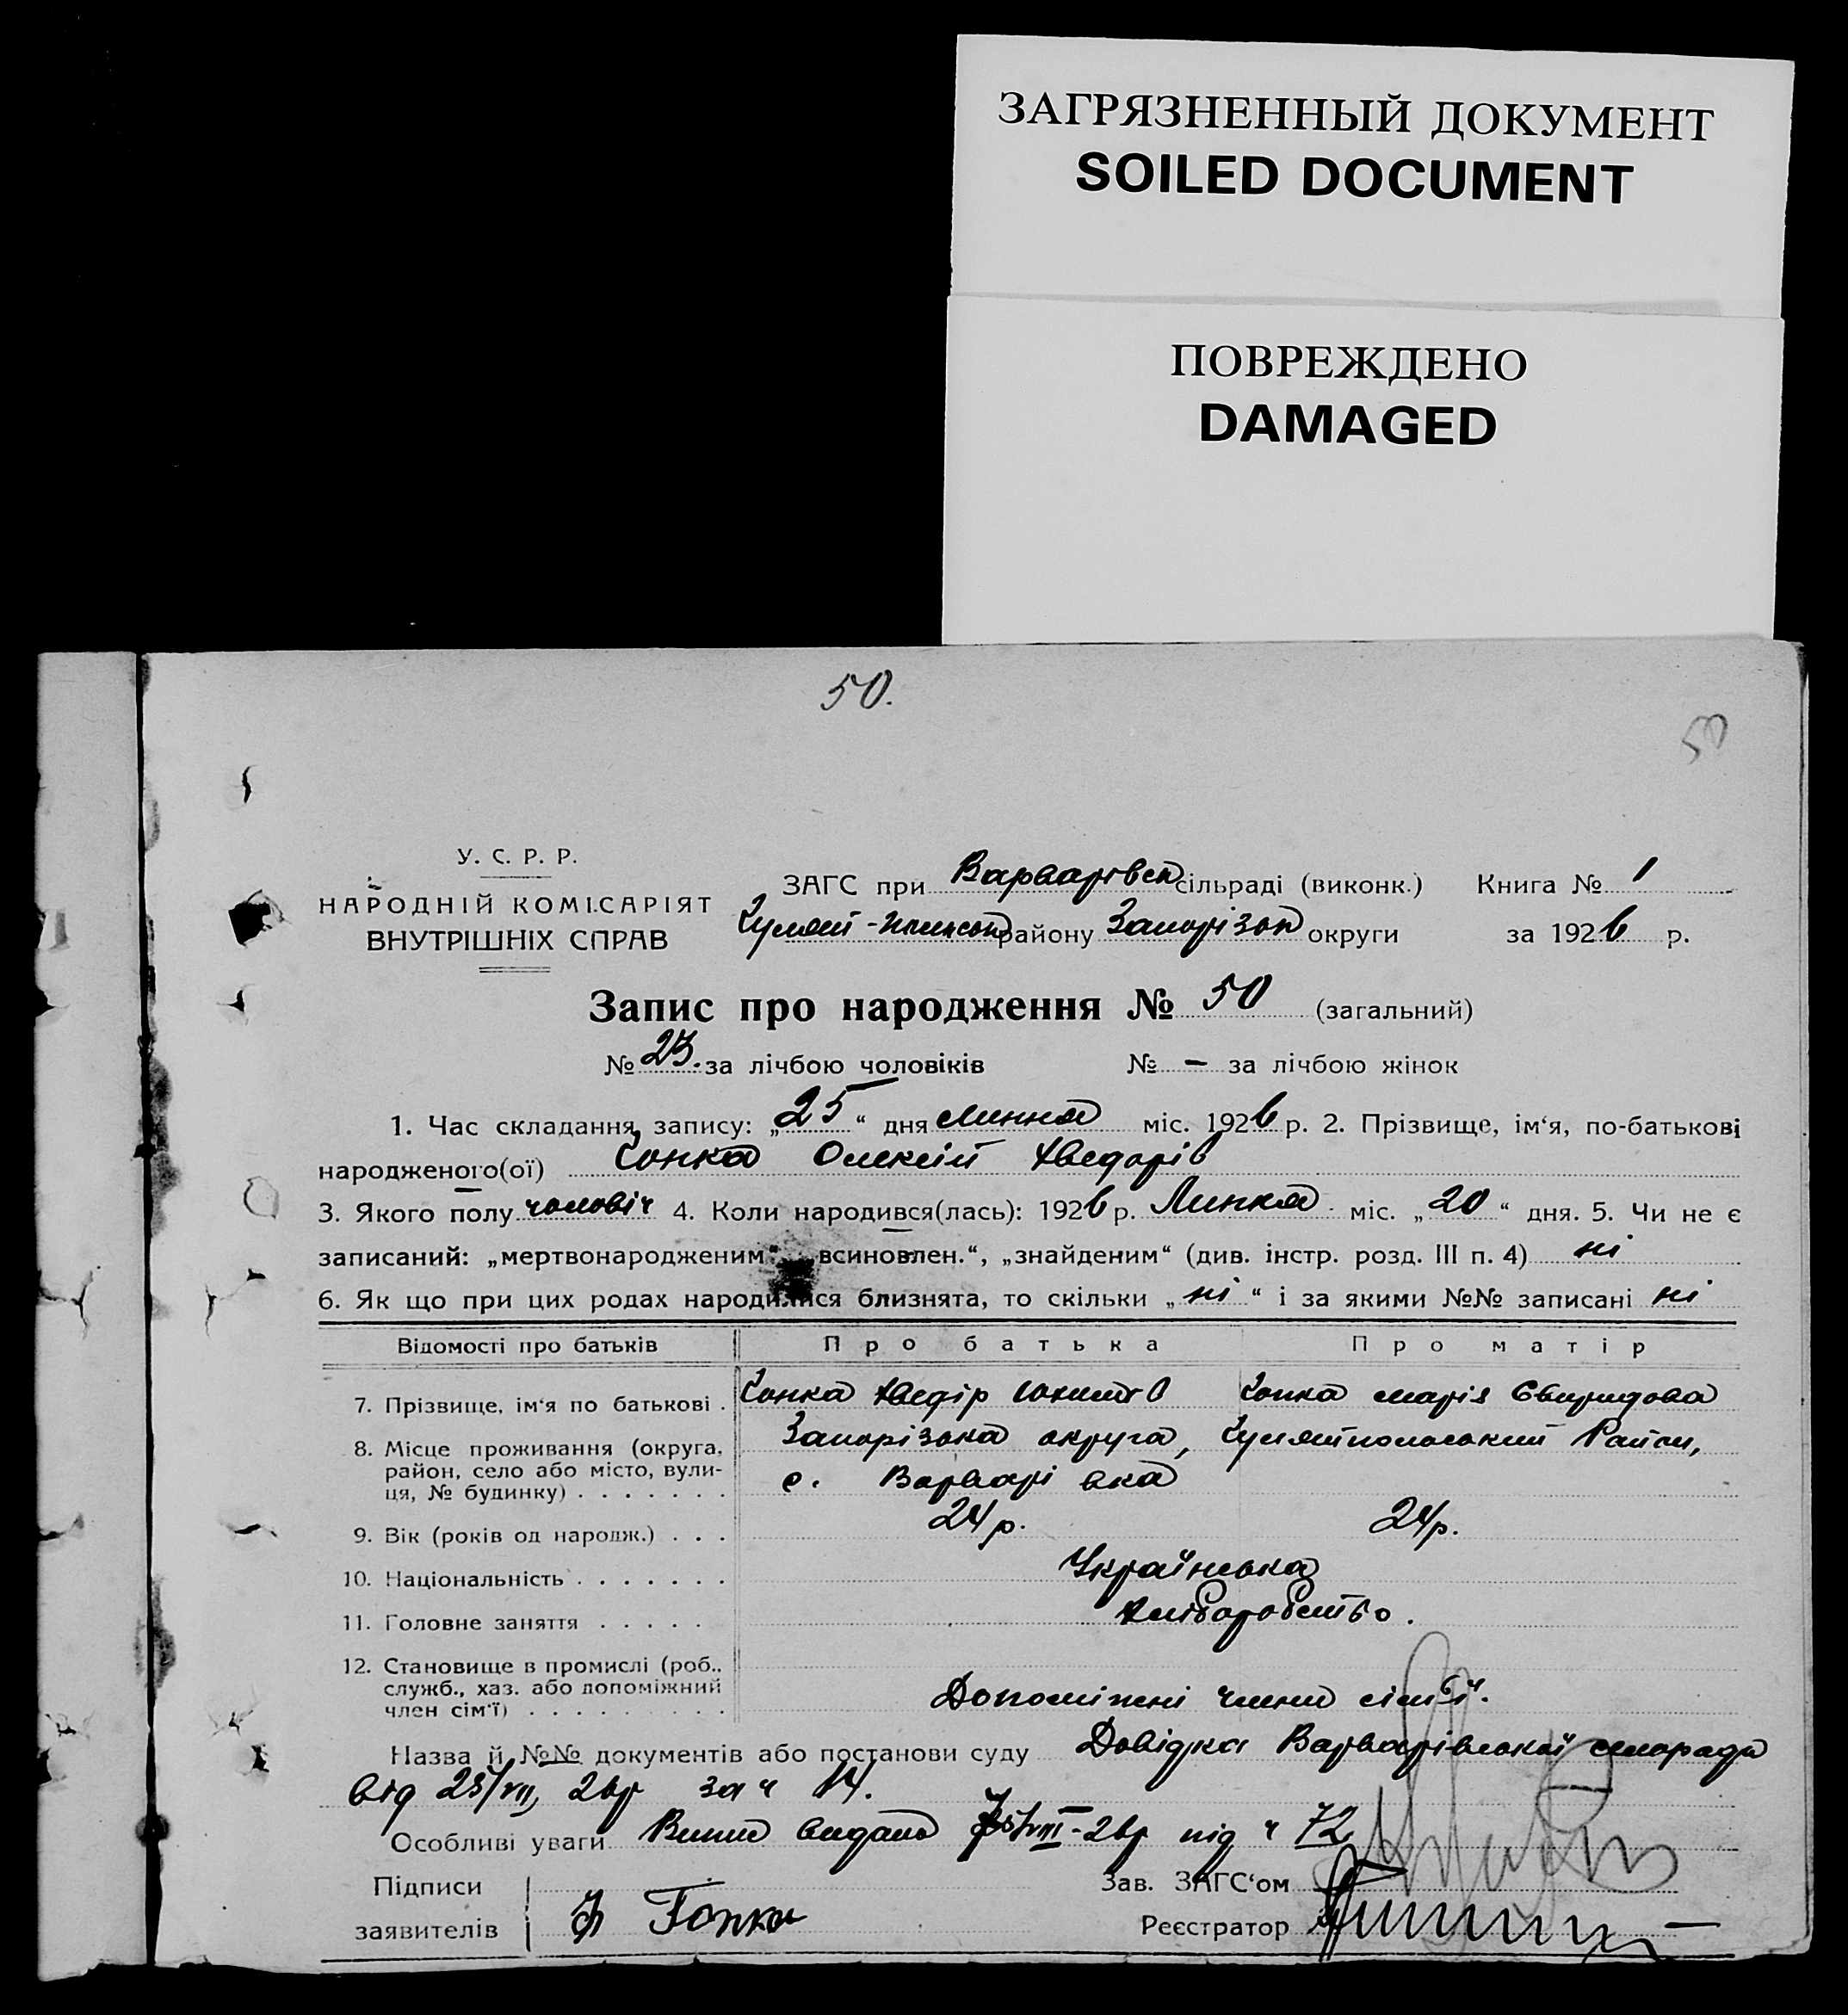 ЗАГРЯЗНЕННЫЙ ДОКУМЕНТ
SOILED DOCUMENT
ПОВРЕЖДЕНО
DAMAGED
50.
50
У. С. Р. Р.
НАРОДНІЙ КОМІСАРІЯТ
ВНУТРІШНІХ СПРАВ
ЗАГС при Варварівськ сільраді (виконк.) Книга № 1
Гуляй-Пільськ району Запорізьк округи за 1926 р.
Запис про народження № 50 (загальний)
№ 23. за лічбою чоловіків № – за лічбою жінок
1. Час складання запису: „25“ дня липня міс. 1926 р. 2. Прізвище, ім‘я, по-батькові
народженого(ої) Гопка Олексій Хведорів
3. Якого полу чоловіч 4. Коли народився(лась): 1926 р. Липня міс. „20“ дня. 5. Чи не є
записаний: „мертвонародженим“ „всиновлен.“, „знайденим“ (див. інстр. розд. III п. 4) ні
6. Як що при цих родах народилися близнята, то скільки „ні“ і за якими №№ записані ні
Відомості про батьків Про батька Про матір
7. Прізвище, ім‘я по батькові . Гопка Хведір Гопка Марія Свиридова
8. Місце проживання (округа, Запорізька округа, Гуляйпольський Район,
район, село або місто, вули-
ця, № будинку) . . . . . . . с. Варварівка
9. Вік (років од народж.) . . . 24 р. 24 р.
10. Національність . . . . . . . Українська
11. Головне заняття . . . . . Хліборобство.
12. Становище в промислі (роб.,
служб., хаз. або допоміжний
член сім‘ї) . . . . . . . . . Допоміжні члени сім'ї.
Назва й №№ документів або постанови суду Довідка Варварівської сільради
від 25/VII, 26р за ч 14.
Особливі уваги Випис видано /VIII-26р під ч 72
Підписи
заявителів Ф Гопка
Зав. ЗАГС‘ом
Реєстратор